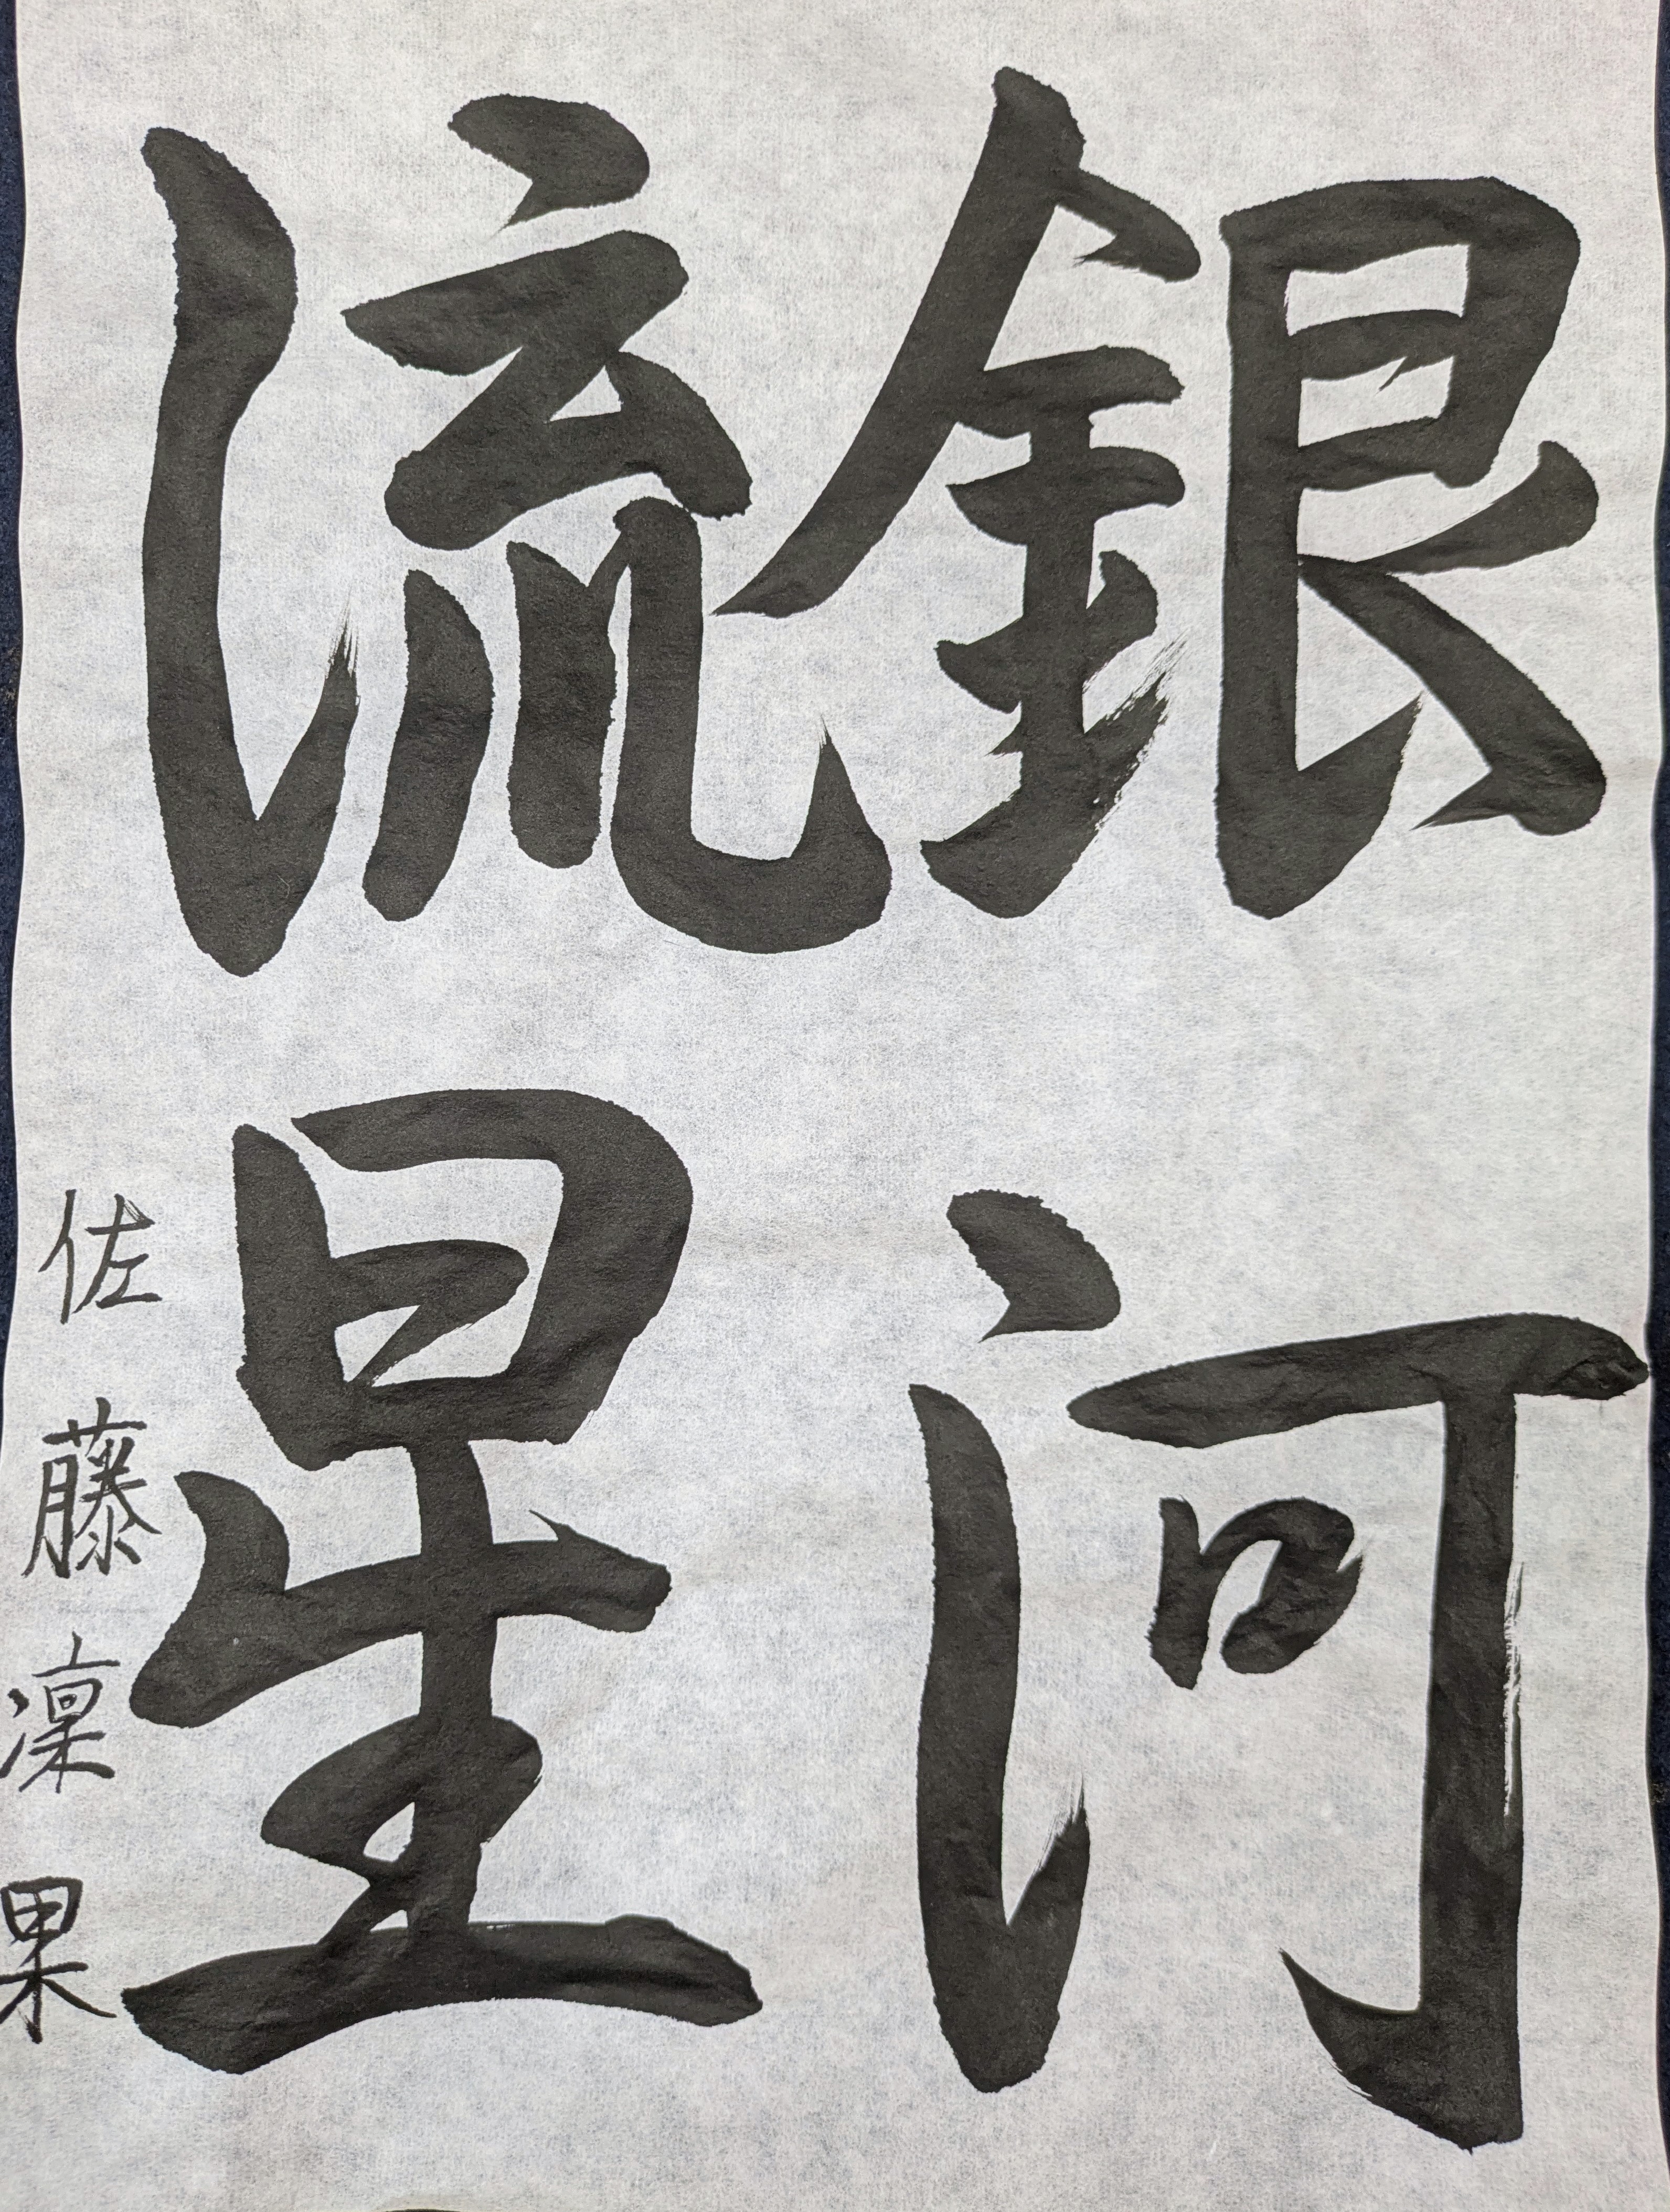 銀河
流星
佐藤凜果